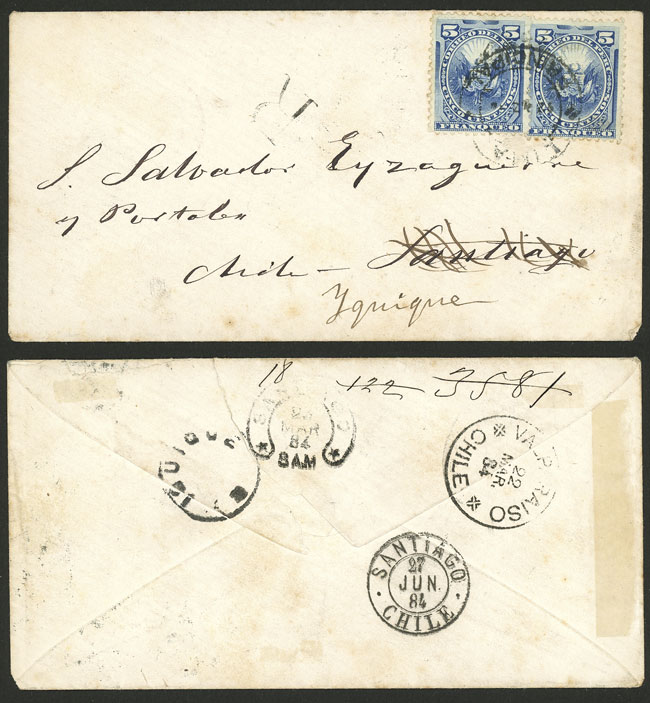 5 5 5 5
CORREO DEL PERU
CORREO DEL PERU
FRANQUEO FRANQUEO
S. Salvador Eyzaguirre
y Portales
Chile - Santiago
Yquique
18 122 3581
SANTIAGO
MAR
84
8 AM
IQUIQUE
VALPARAISO
22
MAR
84
CHILE
SANTIAGO
27
JUN.
84
CHILE